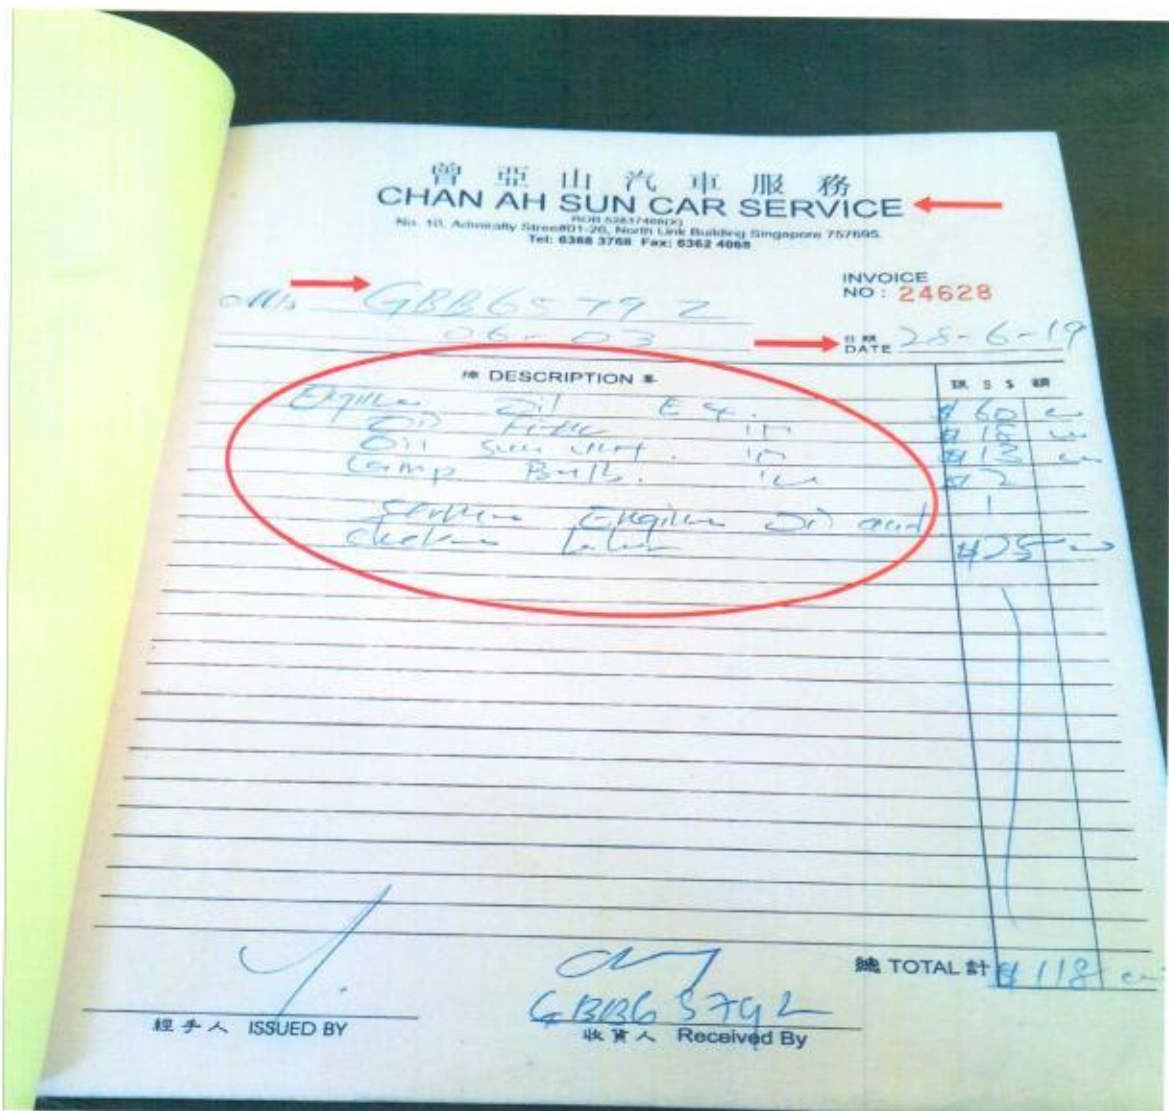 曾亞山汽車服務
CHAN AH SUN CAR SERVICE
ROB 52837466(X)
No. 10, Admiralty Street#01-26, North Link Building Singapore 757695.
Tel: 6368 3766 Fax: 6362 4068
INVOICE
NO: 24628
M/s GBB6579Z
06-03
日期
DATE 28-6-19
DESCRIPTION
S $
Engine Oil $60
Oil $18
Oil $13
Lamp Bulb. $2
Engine Oil and
$25
總 TOTAL 計 $118
GBB6579Z
經手人 ISSUED BY
收貨人 Received By